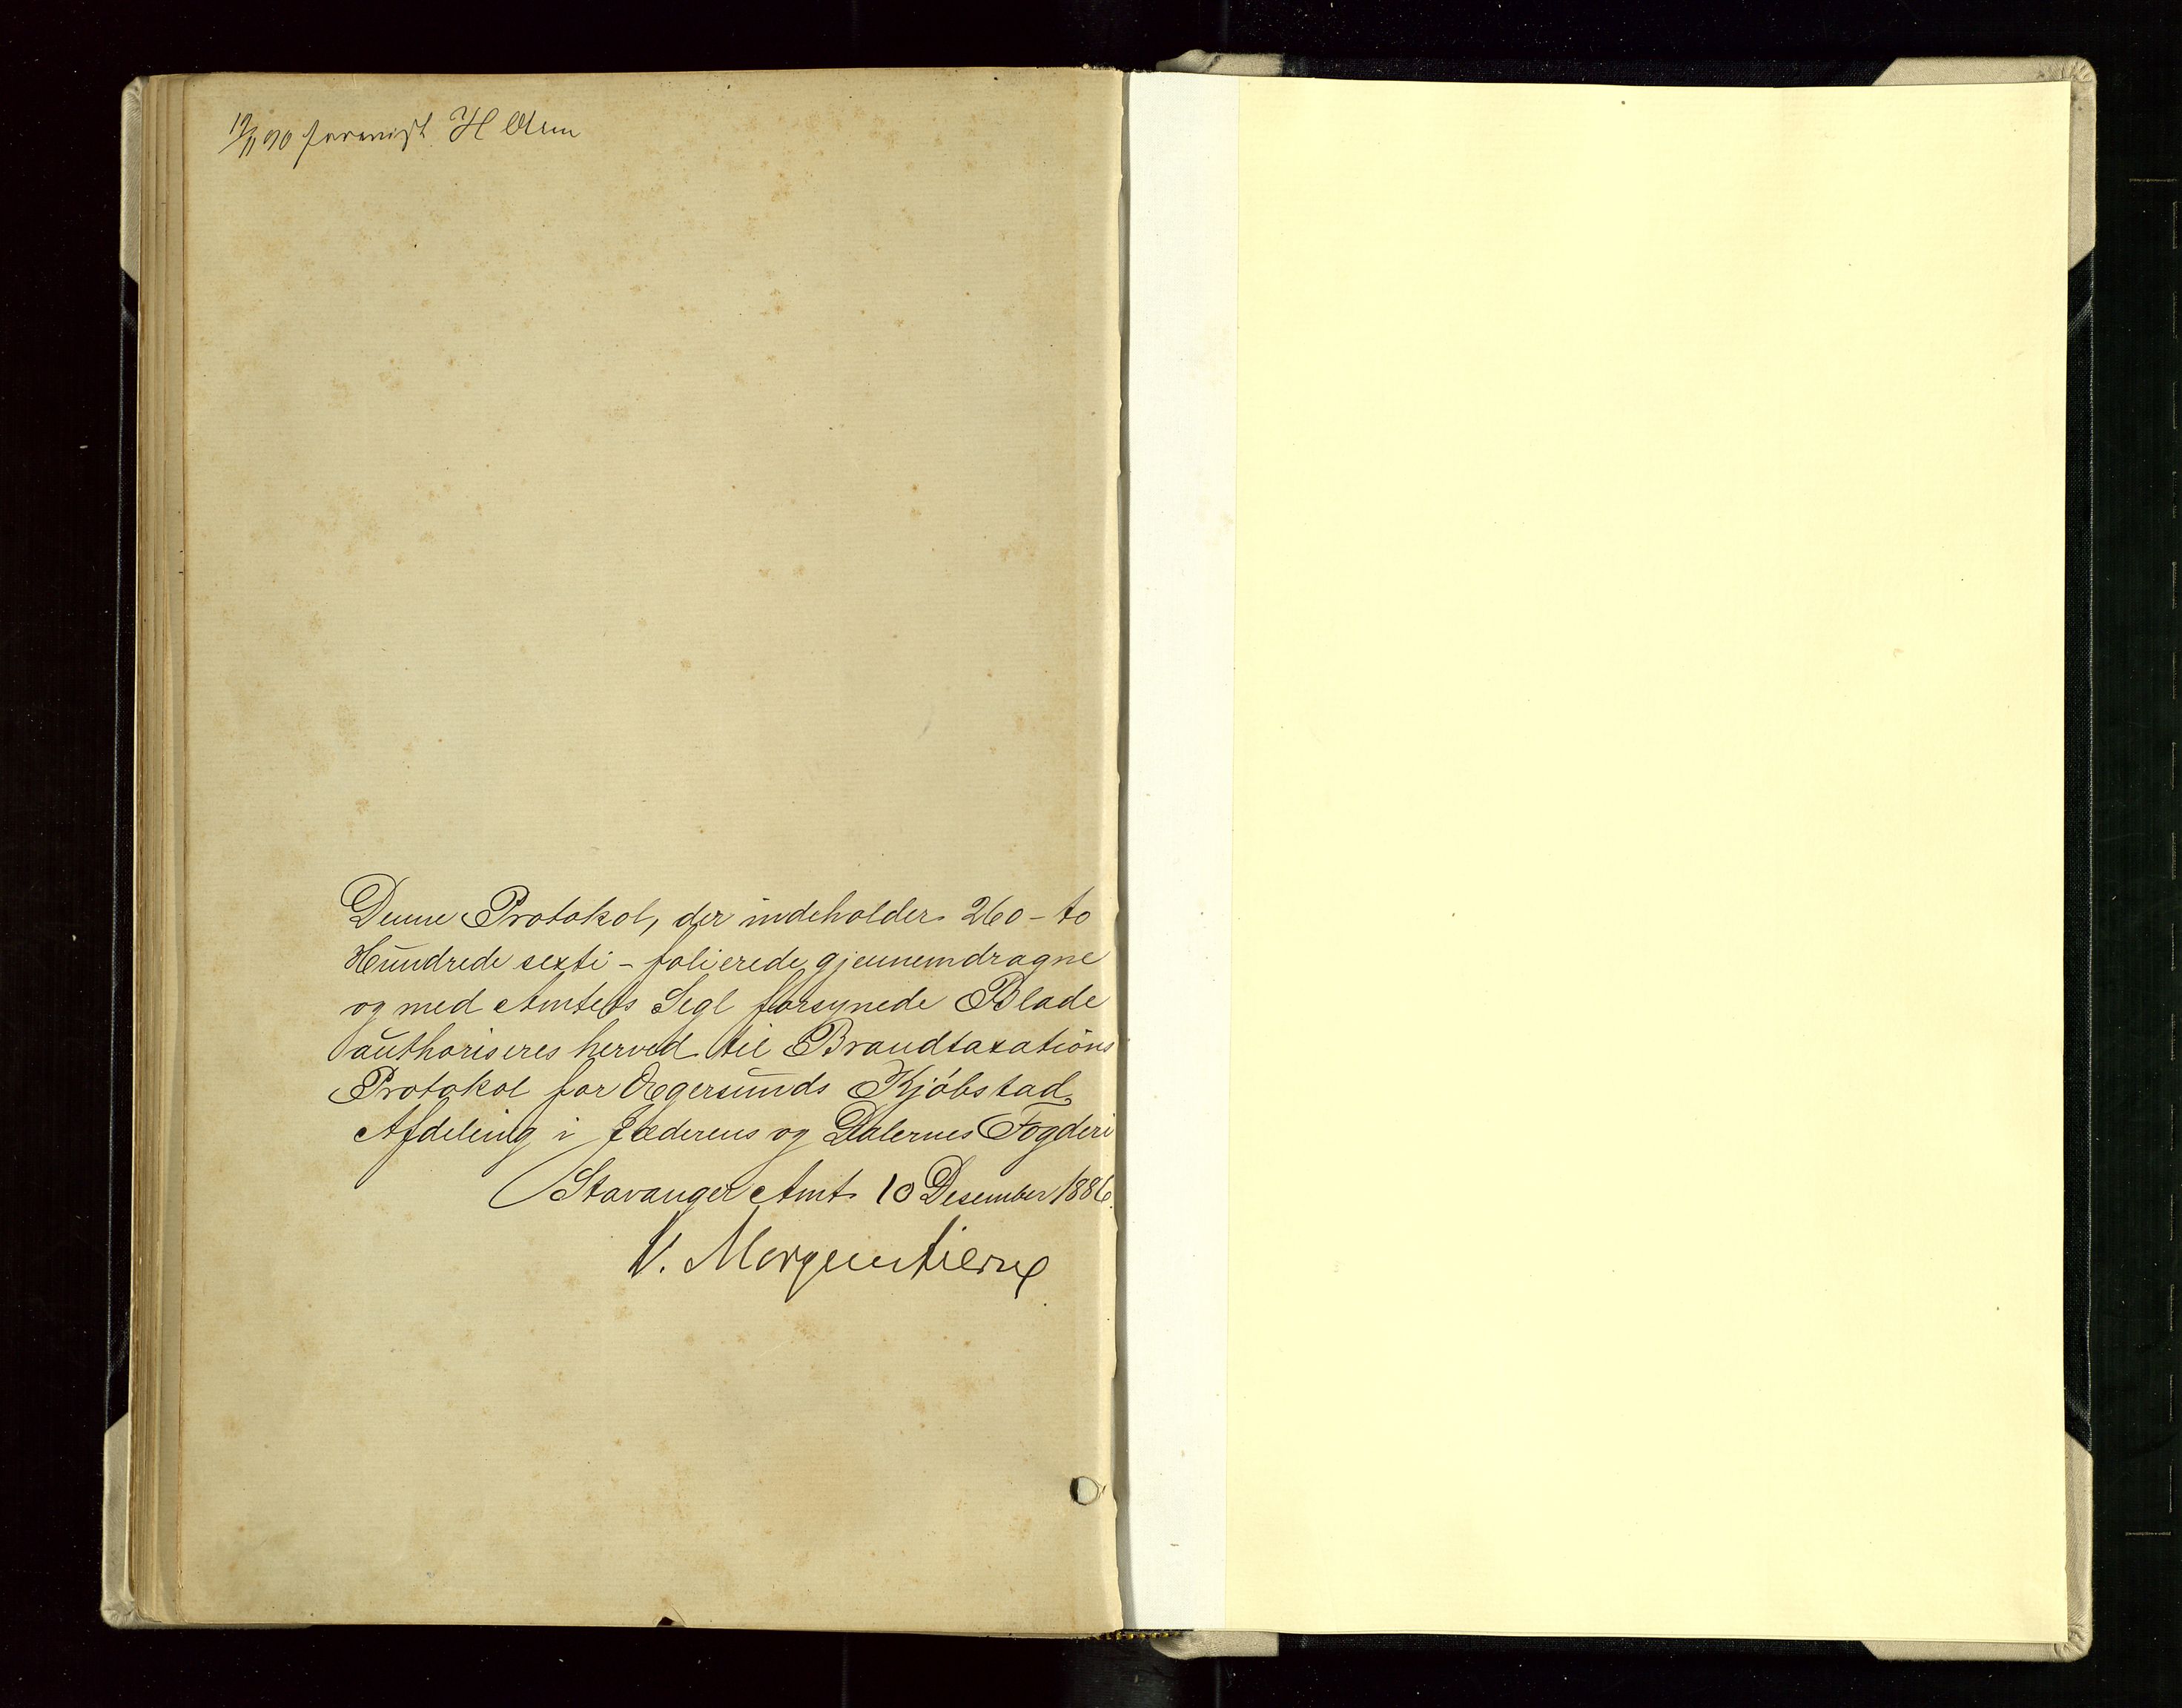 19/11 90 forevist H
Denne Protokol, der indeholder 260 - to
Hundrede sexti - folierede, gjennemdragne
og med Amtets Segl forsynede Blade
authoriseres herved til Brandtaxations
Protokol for Ægersunds Kjøbstad,
Afdeling i Jæderens og Dalernes Fogderi
Stavanger Amt 10 Desember 1886.
V. Morgenstierne